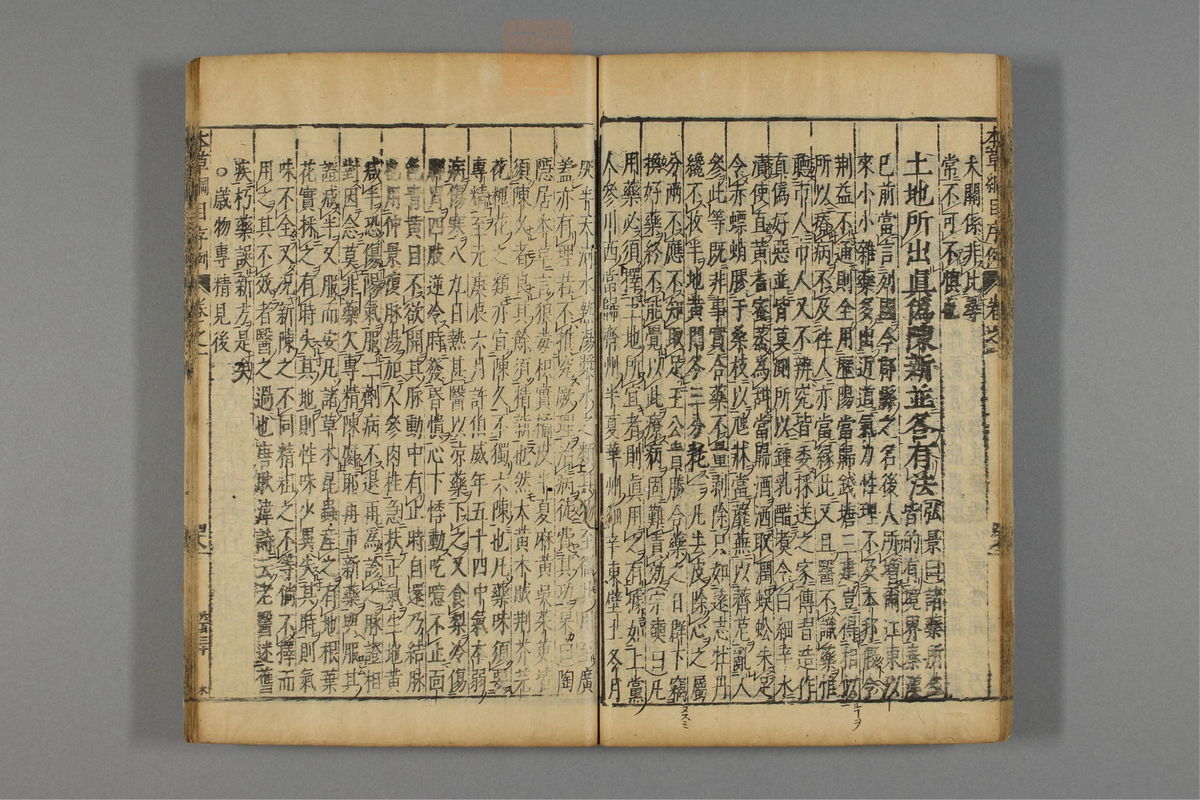 本草綱目序例 卷之一
夫關係非比尋
常不可不慎
土地所出眞僞陳新並各有法弘景曰諸藥所生
皆的有境界秦漢
已前當言列國今郡縣之名後人所增爾江東以
來小小雜藥多出近道氣力性理不及本邦假令
荆益不通則全用歷陽當歸錢塘三建豈得相似
所以療病不及往人亦當緣此又且醫不識藥惟
聽市人市人又不辨究皆委採送之家傳習造作
真僞好惡並皆莫測所以鍾乳醋煮令白細辛水
漬使直黃耆蜜蒸為甜當歸酒洒取潤蜈蚣朱足
令赤螵蛸膠于桑枝以虺牀當蘼蕪以薺苨亂人
參此等既非事實合藥不量剥除只如遠志牡丹
纔不收半地黃門冬三分耗一凡去皮除心之屬
分兩不應不知取足王公貴勝合藥之日群下竊
換好藥終不能覺以此療病固難責効宗奭曰凡
用藥必須擇土地所宜者則真用之有據如上黨
人參川西當歸齊州半夏華州細辛東壁土冬月
灰半天河水熱湯漿水之類其物至微其用至廣
蓋亦有理若不推究厥理治病徒費其功杲曰陶
隱居本草言狼毒枳實橘皮半夏麻黃吳茱萸皆
須陳久者良其餘須精新也然大黃木賊荆芥芫
花槐花之類亦宜陳久不獨六陳也凡藥味須要
專精至元庚辰六月許伯威年五十四中氣本弱
病傷寒八九日熱甚醫以凉藥下之又食梨冷傷
脾胃四肢逆冷時發昏憒心下悸動吃噫不止面
色青黃目不欲開其脉動中有止時自還乃結脉
也用仲景復脉湯加人參肉桂急扶正氣生地黃
减半恐傷陽氣服二劑病不退再為診之脉證相
對因念莫非藥欠專精陳腐耶再市新藥與服其
證减半又服而安凡諸草木昆蟲產之有地根葉
花實採之有時失其地則性味少異失其時則氣
味不全又况新陳之不同精粗之不等倘不擇而
用之其不效者醫之過也唐耿湋詩云老醫迷舊
疾朽藥誤新方是矣
○歲物專精見後
本草綱目序例 卷之一